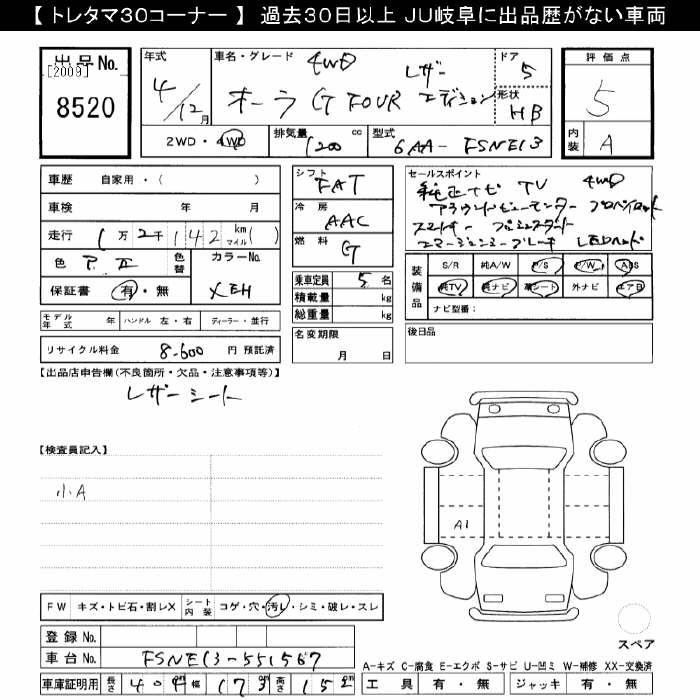 【 トレタマ30コーナー 】 過去30日以上 JU岐阜に出品歴がない車両
出品No. [2009] 8520
年式 4/12月
車名・グレード 4WD レザー オーラ G FOUR エディション
ドア 5
形状 HB
評価点 5
内装 A
2WD・4WD
排気量 1200 cc
型式 6AA- FSNE13
車歴 自家用・( )
車検 年 月
走行 1万2千142 km マイル( )
色 色替 カラーNo. XEH
保証書 有・無
モデル年式 年 ハンドル 左・右 ディーラー・並行
リサイクル料金 8,600 円 預託済
シフト FAT
冷房 AAC
燃料 G
乗車定員 5 名
積載量 kg
総重量 kg
名変期限 月 日
セールスポイント
純正ナビ TV 4WD
アラウンドビューモニター プロパイロット
スマートキー プッシュスタート
エマージェンシーブレーキ LEDヘッド
装備品 S/R 純A/W P/S P/W ABS
純TV 純ナビ 革シート 外ナビ エアB
ナビ型番:
後日品
【出品店申告欄(不良箇所・欠品・注意事項等)】
レザーシート
【検査員記入】
小A
A1
FW キズ・トビ石・割レX シート内装 コゲ・穴・汚レ・シミ・破レ・スレ
登録No.
車台No. FSNE13-551567
車庫証明用 長さ 404 幅 173 高さ 152
スペア
A-キズ C-腐食 E-エクボ S-サビ U-凹ミ W-補修 XX-交換済
工具 有・無 ジャッキ 有・無